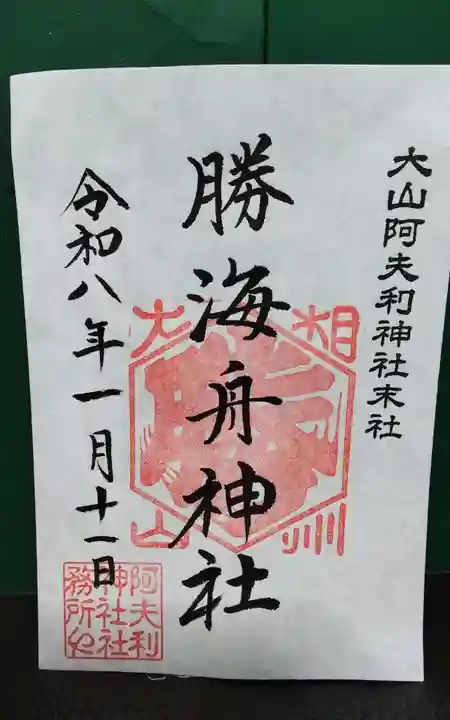 大山阿夫利神社末社
勝海舟神社
令和八年一月十一日
相州
大山
阿夫利
神社社
務所之